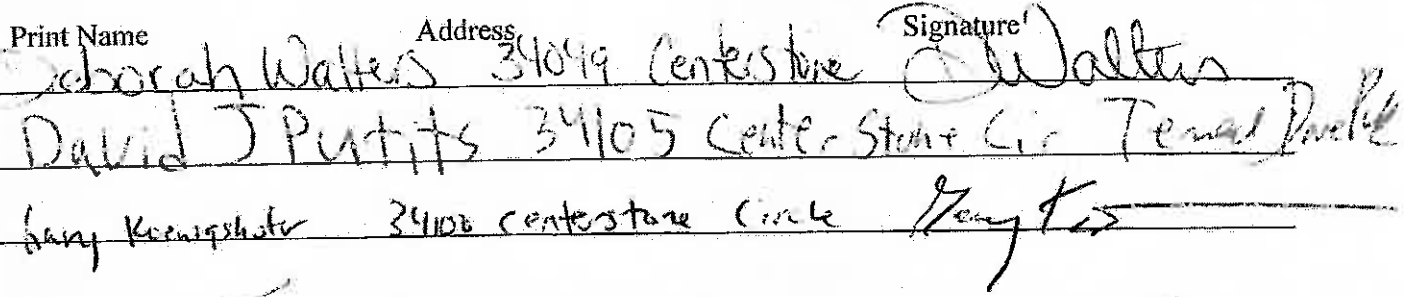 Print Name Address Signature
Deborah Walters 34049 Centerstone DWalters
David J Putits 34105 Center Stone Cir
34100 Centerstone Circle